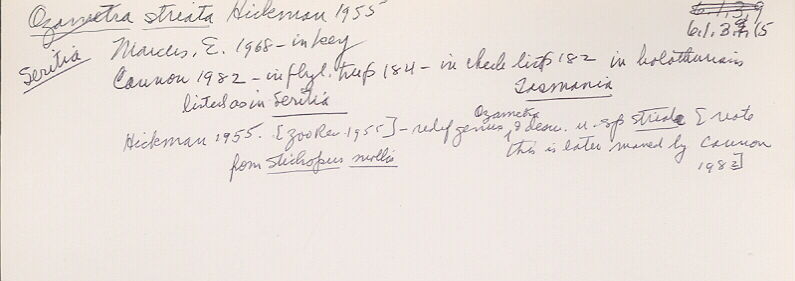 Ozametra striata Hickman 1955
6.1.3.9
6.1.3.7.15
Seritia Marcus, E. 1968 - in key
Cannon 1982 - in phyl. tree p 184 - in check list p 182 in holothurians
listed as in Seritia Tasmania
Hickman 1955. [Zoo Rec 1955] - redef genus Ozametra, & descr. n. sp striata [note
from Stichopus mollis this is later moved by Cannon
1982]